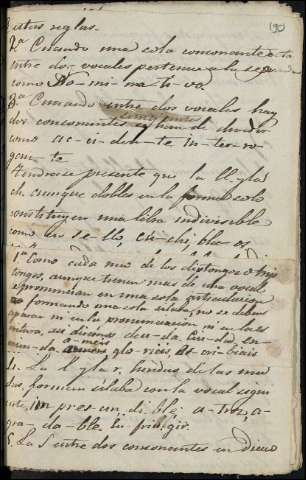 190
estas reglas.
2.a Cuando una sola consonante está
entre dos vocales pertenece a la segunda
como No-mi-na-ti-vo.
3.a Cuando entre dos vocales hay
dos consonantes se han de dividir
como ac-ci-den-te in-ter-ro
gen-te
Tendrase presente que la ll y la
ch aunque dobles en la forma solo
constituyen una letra indivisible
como en se-llo, cu-chi,
1.a Como cada uno de los diptongos o trip
tongos, aunque tienen mas de una vocal
se pronuncian en una sola articulacion
formando una sola silaba, no se deben
separar ni en la pronunciacion ni en la es
critura, asi diremos deu-da Ciu-dad, en-
mien-da a-meis glo-rieis
4. La l y la r, heridas de las mu
das, forman silaba con la vocal sigui
ente, im-pres-cin-di-ble, a-troz, a-
gra-da-ble
5. La S entre dos consonantes